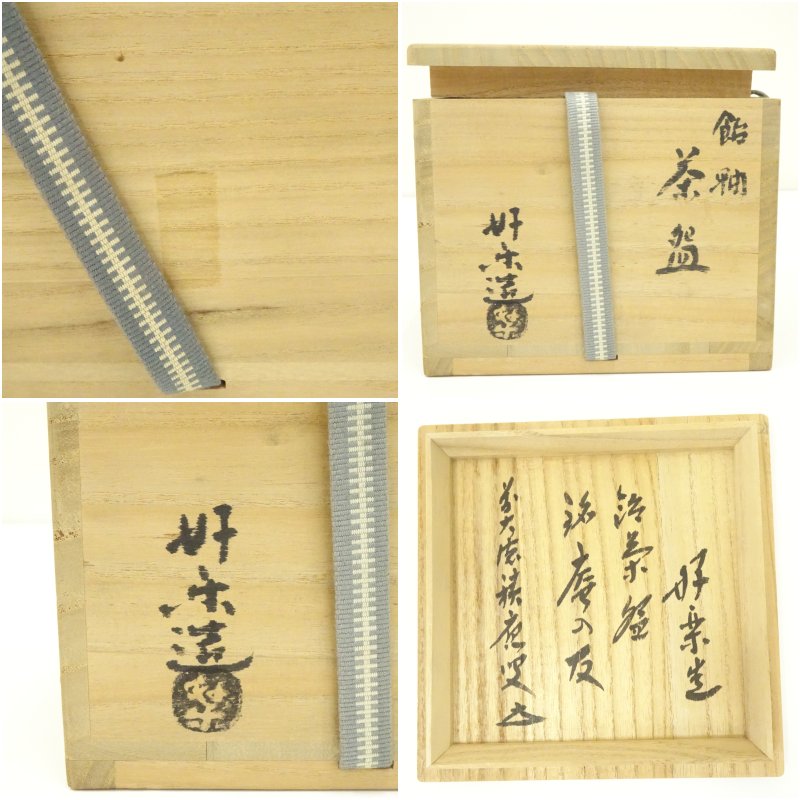 飴釉
茶盌
好楽造
好楽造
好楽造
飴茶盌
銘 庵の友
前大徳積應叟